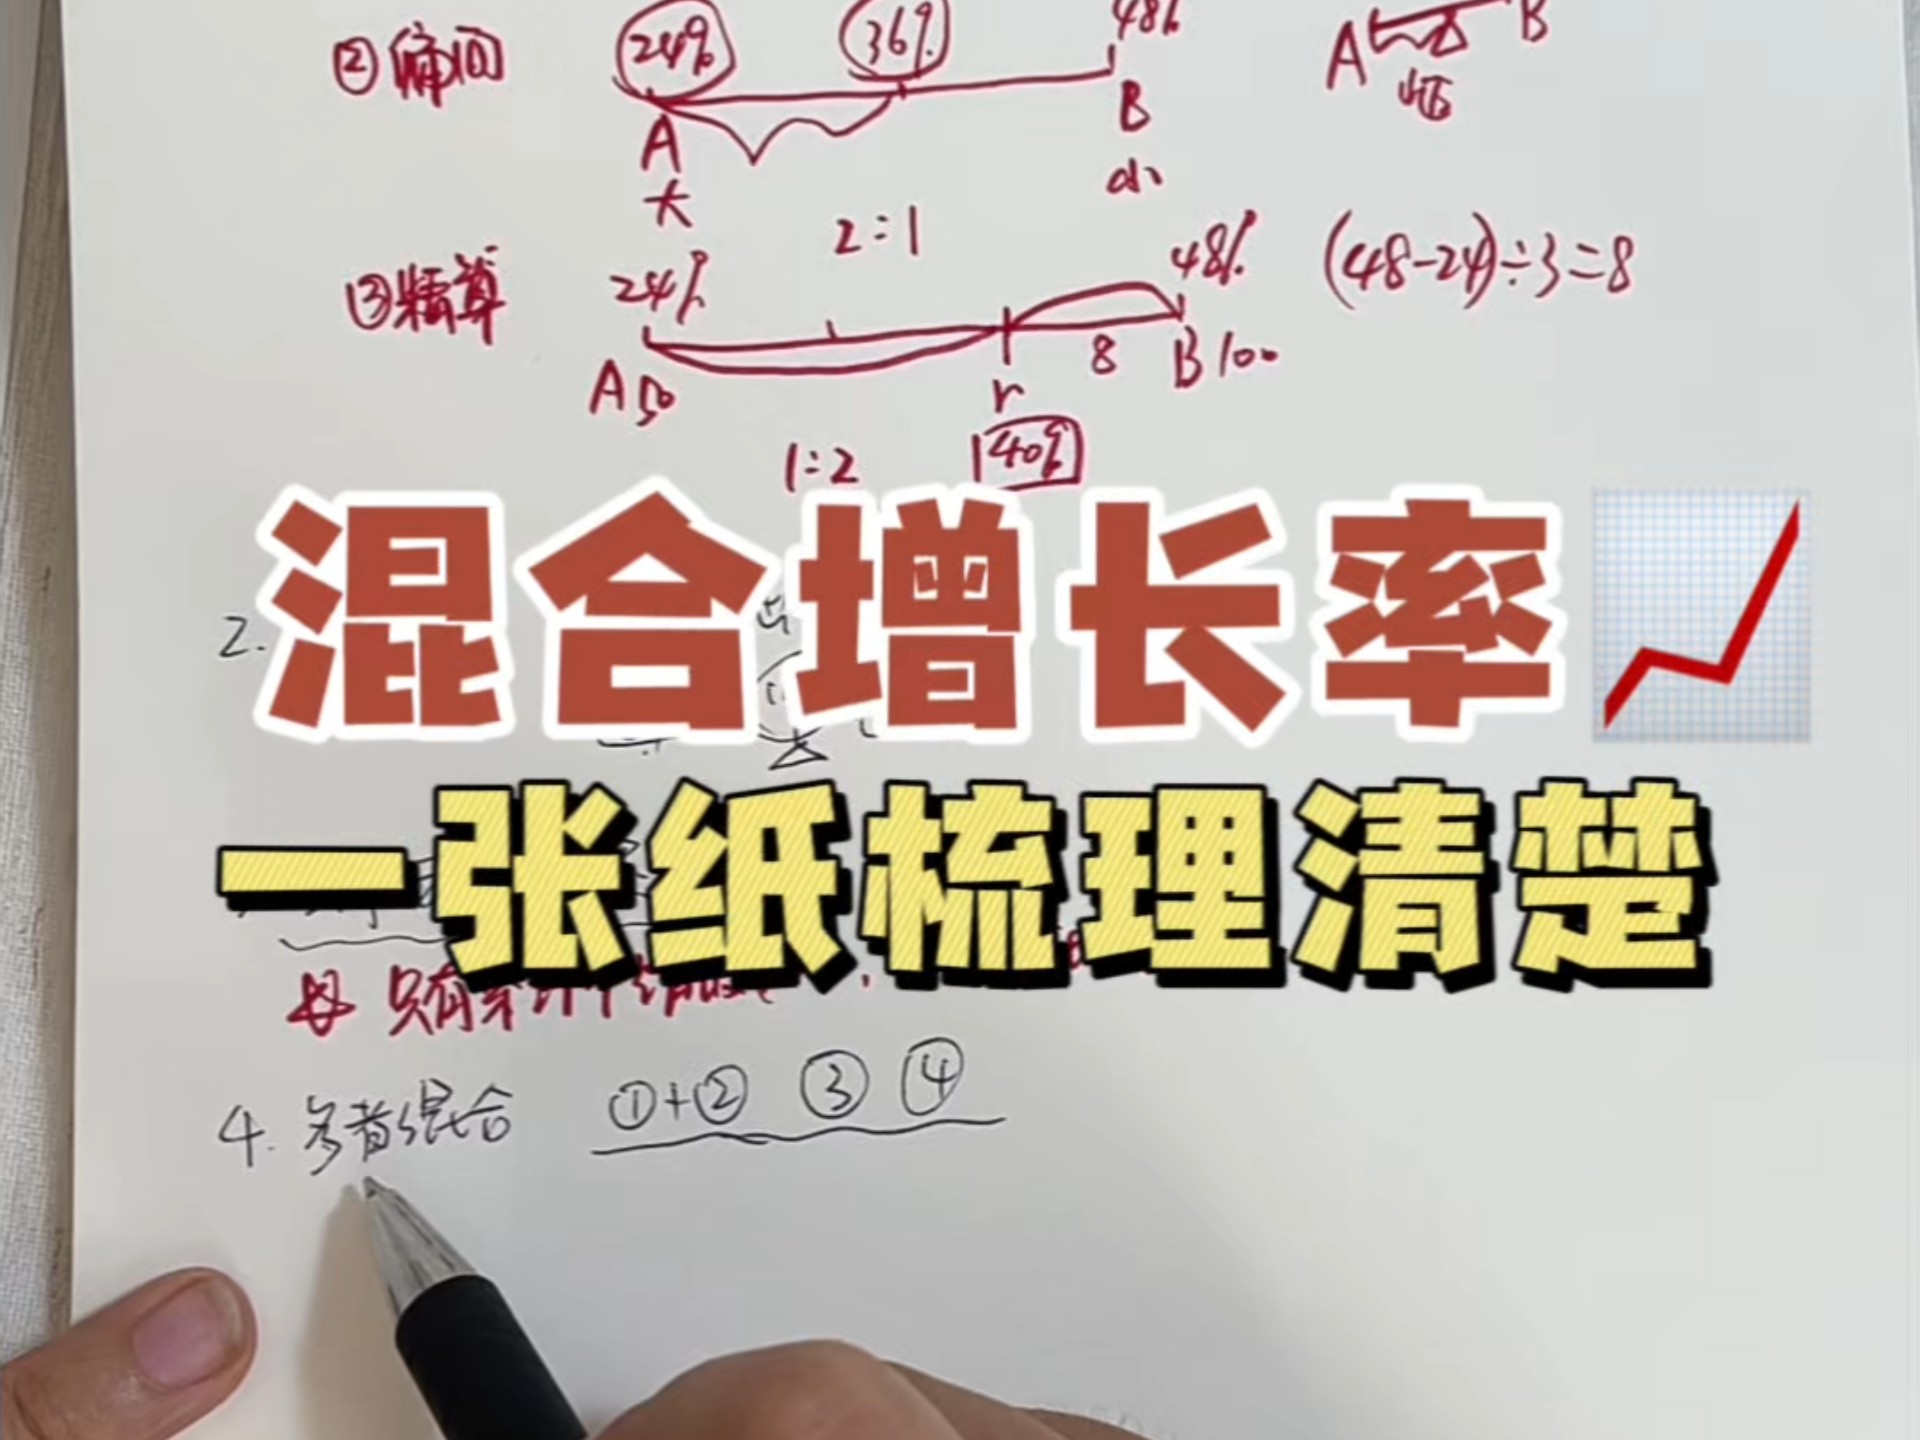 ②偏向 24% 36% 48% A B
A B
大 小
③精算 24% 2:1 48% (48-24)÷3=8
A 50 r 8 B 100
1:2 40%
混合增长率
2.
一张纸梳理清楚
母 只有
4. 多者混合 ①+② ③ ④